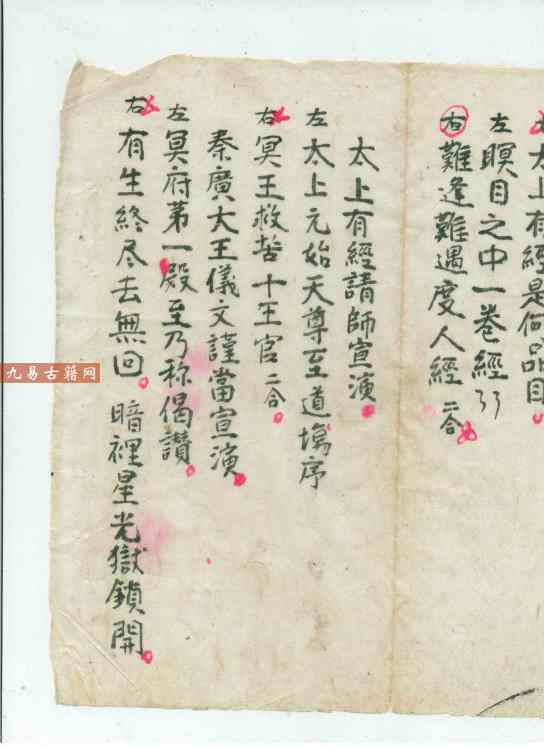 太上有經是何品目
左 瞑目之中一卷經
右 難逢難遇度人經 二合
太上有經請師宣演
左 太上元始天尊至道塲序
右 冥王救苦十王官 二合
秦廣大王儀文謹當宣演
左 冥府第一殿至乃称偈讃
右 有生終尽去無回 暗裡星光獄鎖開
九易古籍网